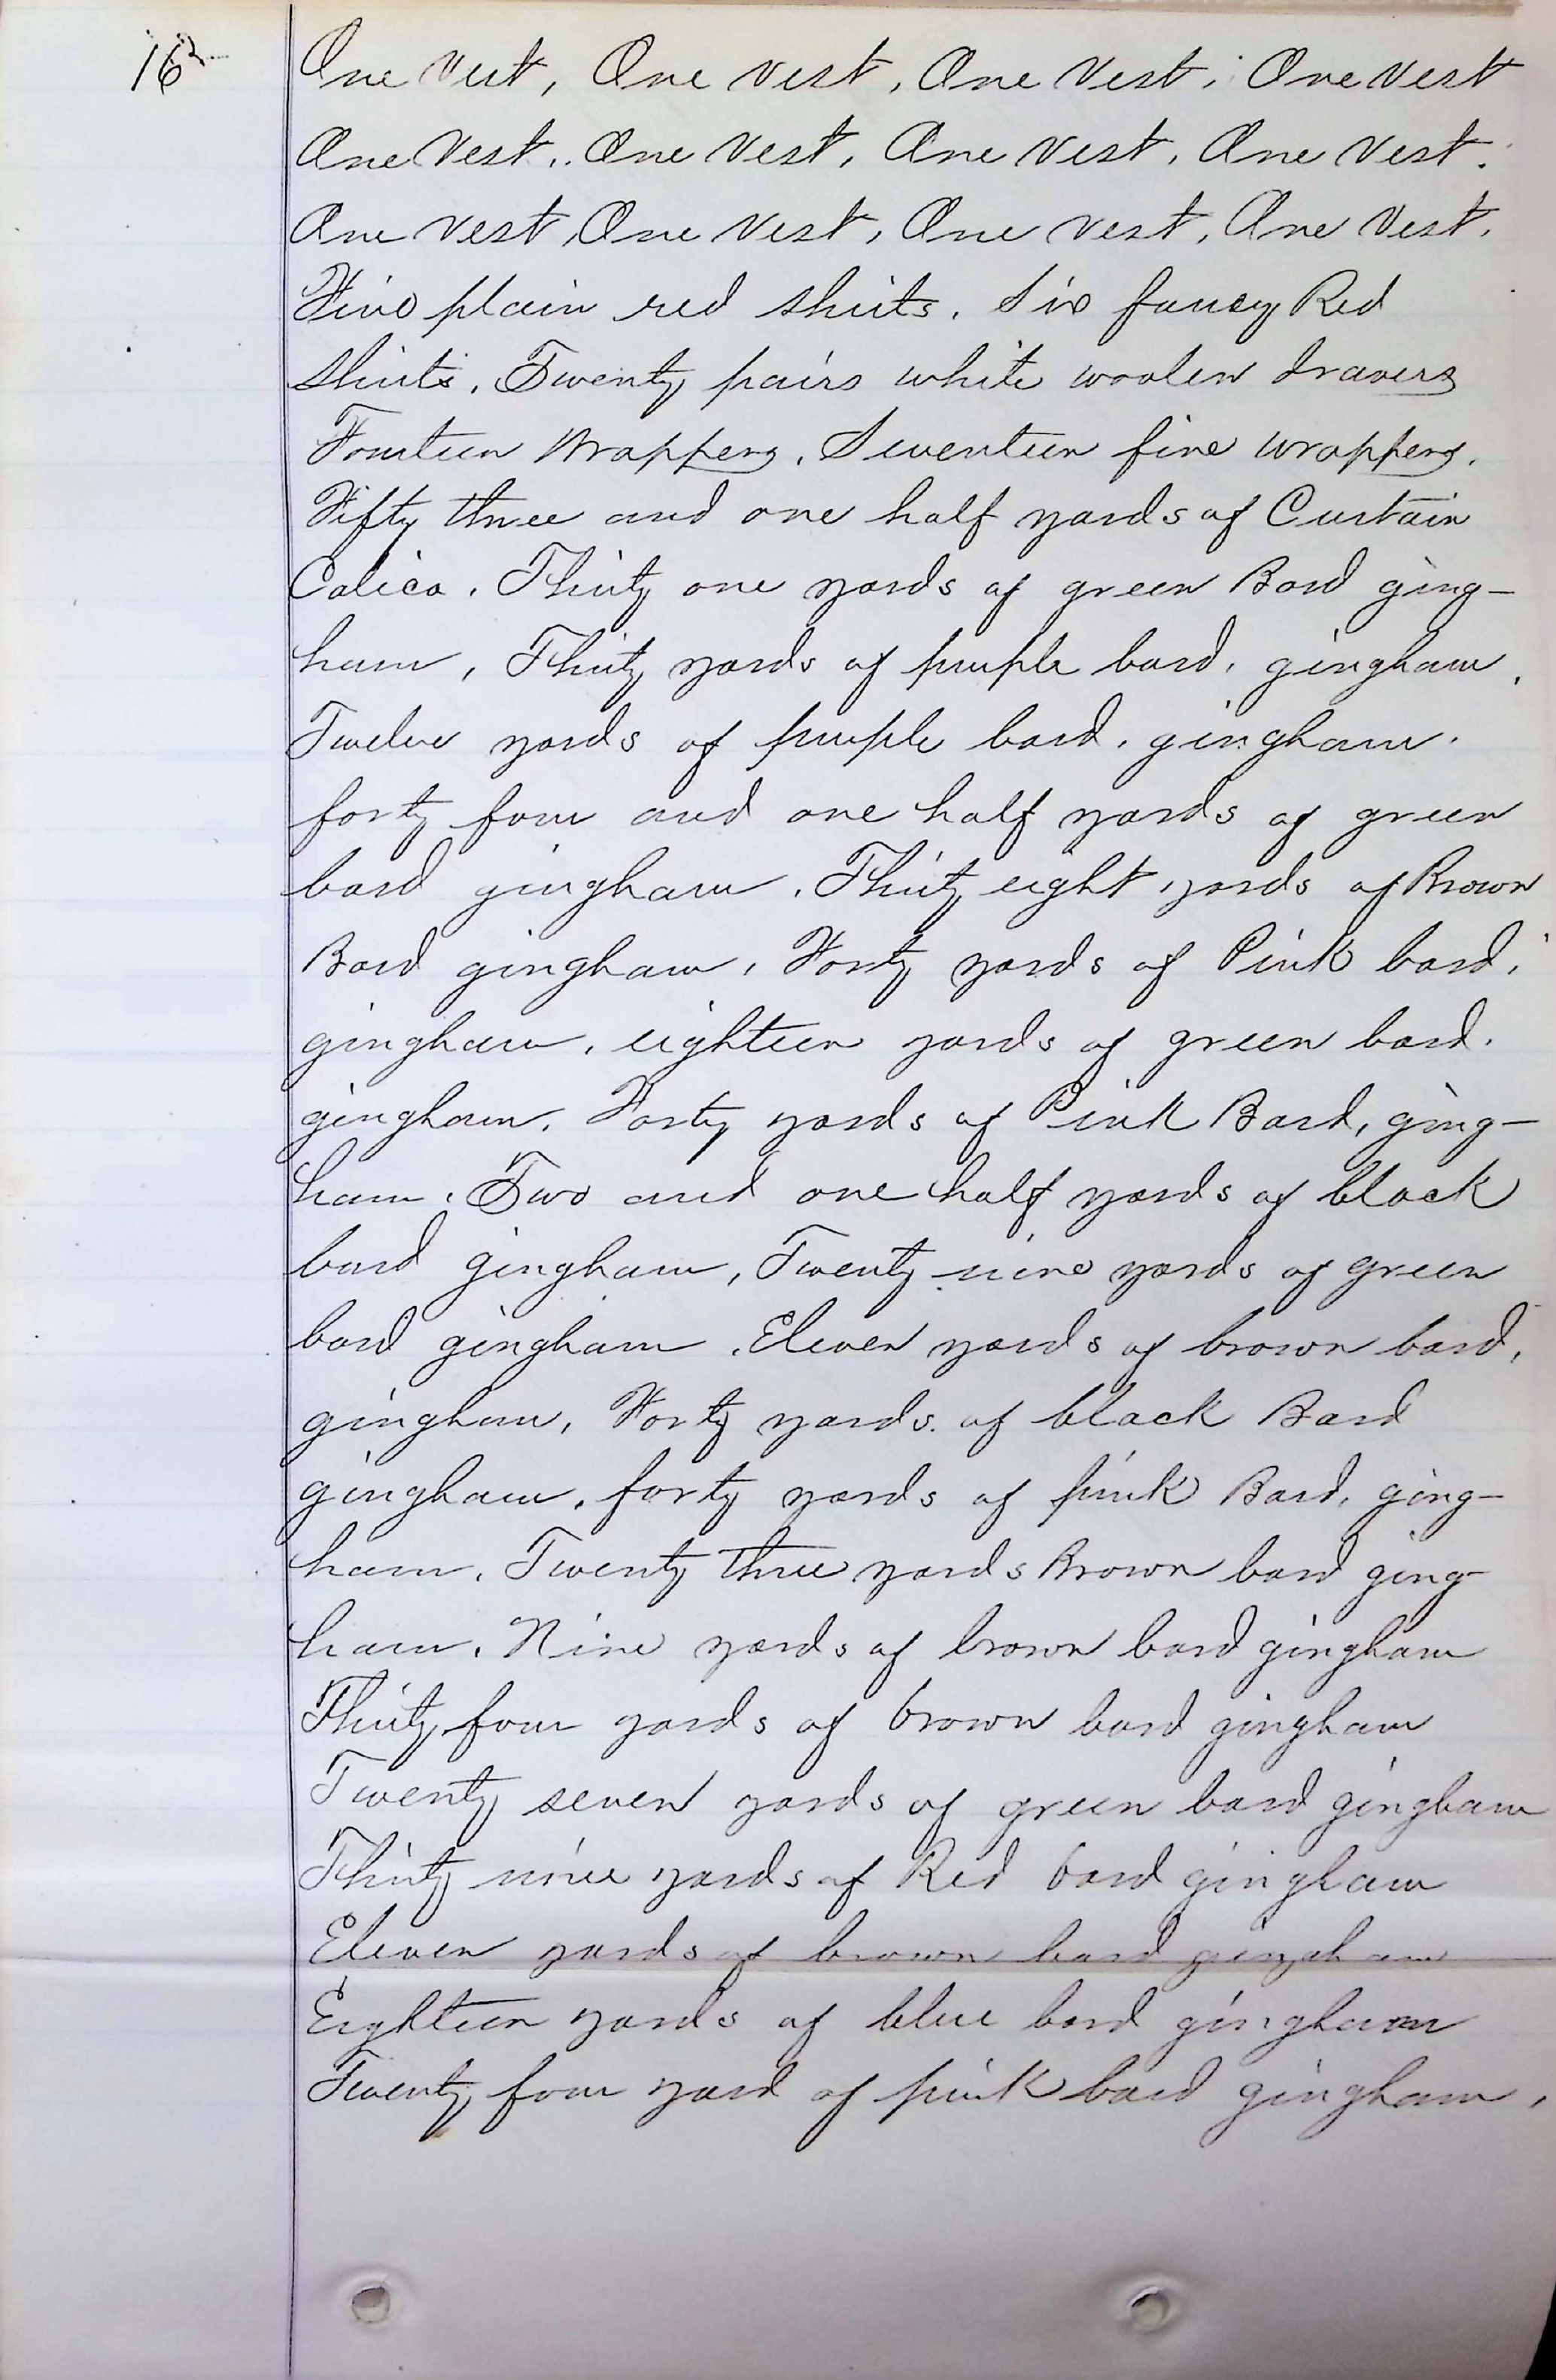 162
One Vest, One vest, One Vest, One vest
One Vest, One Vest, One Vest, One Vest.
One Vest, One Vest, One Vest, One Vest.
Five plain red shirts. Six fancy Red
Shirts. Twenty pairs white woolen drawers
Fourteen Wrappers. Seventeen fine wrappers.
Fifty three and one half yards of Curtain
Calico. Thirty one yards of green Bard ging-
ham, Thirty yards of purple bard. gingham.
Twelve yards of purple bard. gingham.
forty four and one half yards of green
bard gingham. Thirty eight yards of Brown
Bard gingham, Forty yards of Pink bard.
gingham, eighteen yards of green bard.
gingham. Forty yards of Pink Bard, ging-
ham. Two and one half yards of black
bard gingham, Twenty nine yards of green
bard gingham. Eleven yards of brown bard,
gingham, Forty yards of black Bard
gingham. forty yards of pink Bard. ging-
ham. Twenty three yards Brown bard ging-
ham. Nine yards of brown bard gingham
Thirty four yards of brown bard gingham
Twenty seven yards of green bard gingham
Thirty nine yards of Red bard gingham
Eleven yards of brown bard gingham
Eighteen yards of blue bard gingham
Twenty four yard of pink bard gingham,